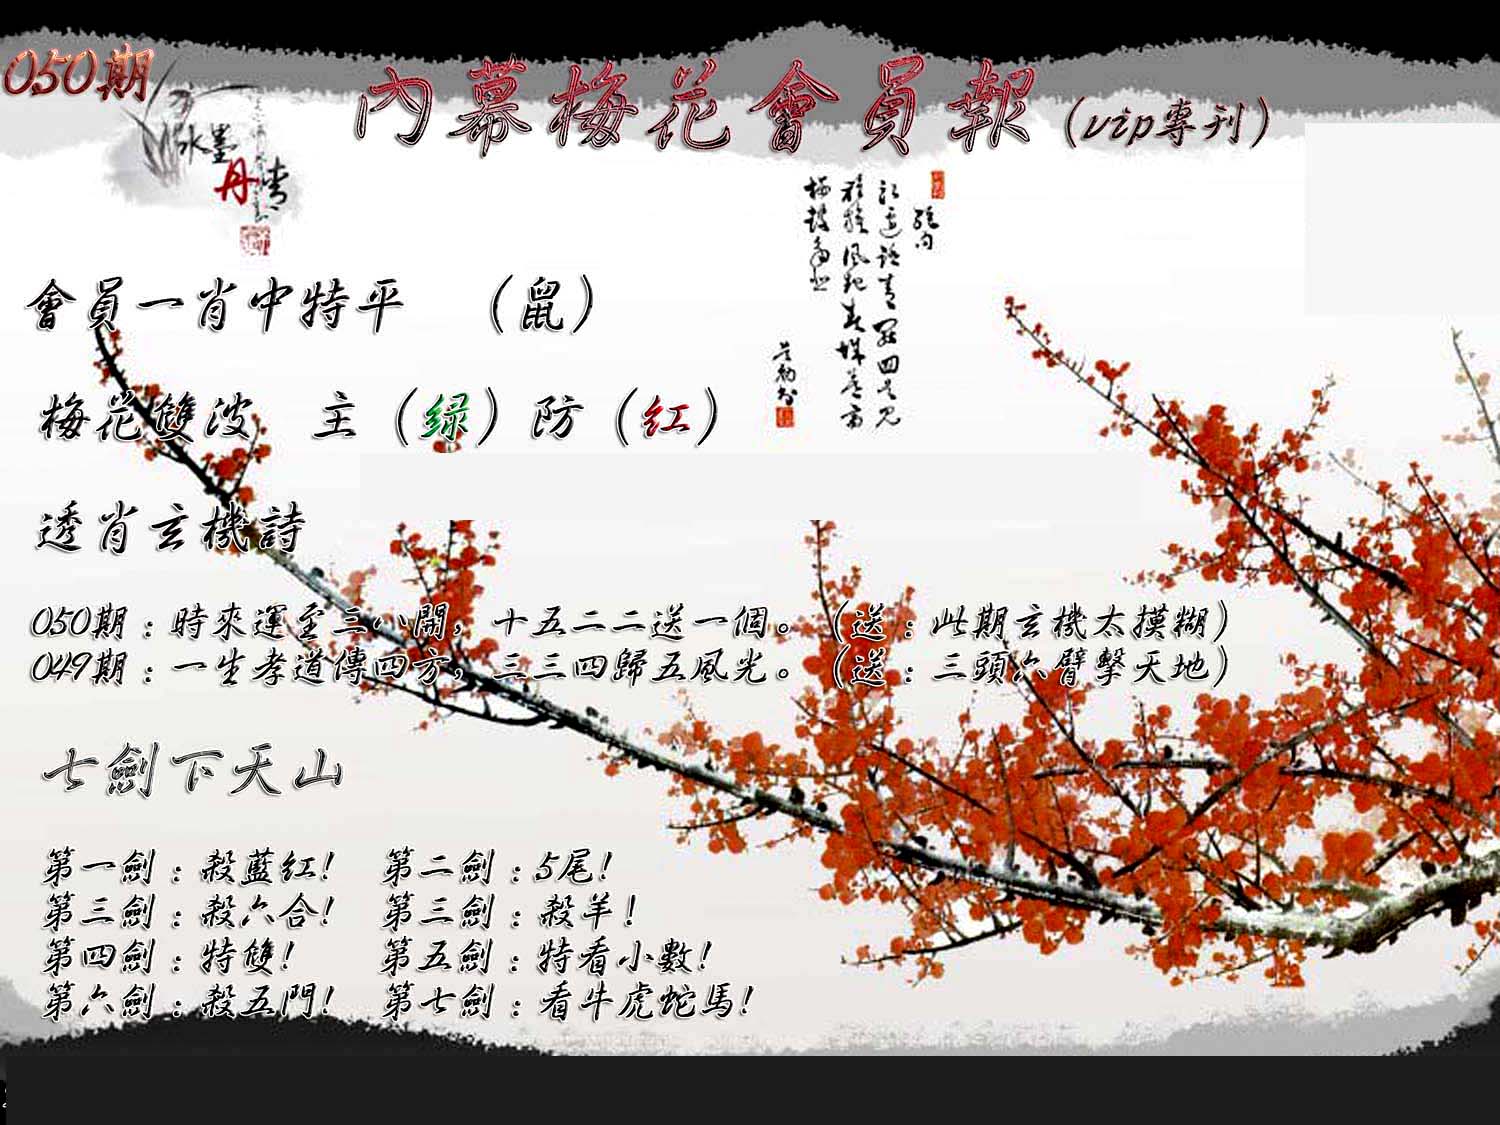 050期
內幕梅花會員報（vip專刊）
水墨
丹青
會員一肖中特平　（鼠）
梅花雙波　主（绿）防（红）
透肖玄機詩
050期：時來運至三八開，十五二二送一個。（送：此期玄機太摸糊）
049期：一生孝道傳四方，三三四歸五風光。（送：三頭六臂擊天地）
七劍下天山
第一劍：殺藍紅！　第二劍：5尾！
第三劍：殺六合！　第三劍：殺羊！
第四劍：特雙！　第五劍：特看小數！
第六劍：殺五門！　第七劍：看牛虎蛇馬！